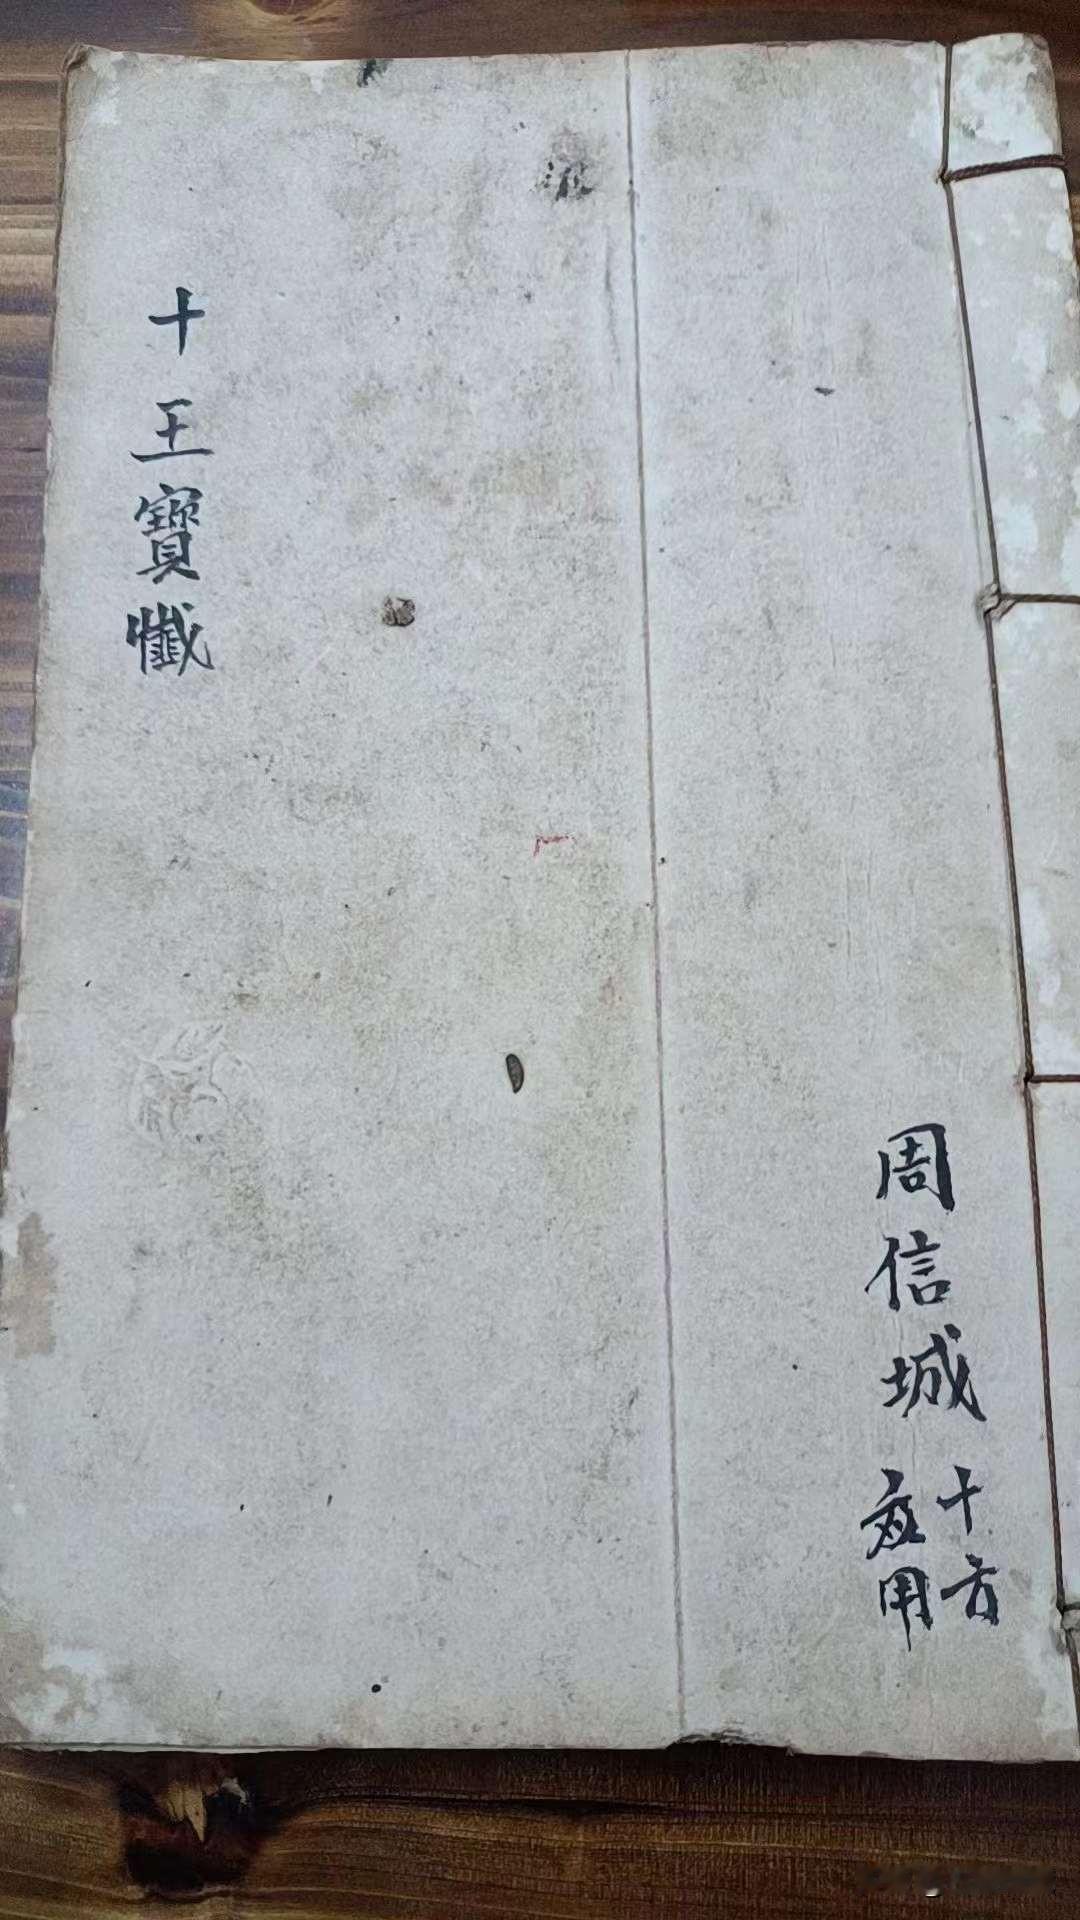 周信城
十方
应用
十王寶懺